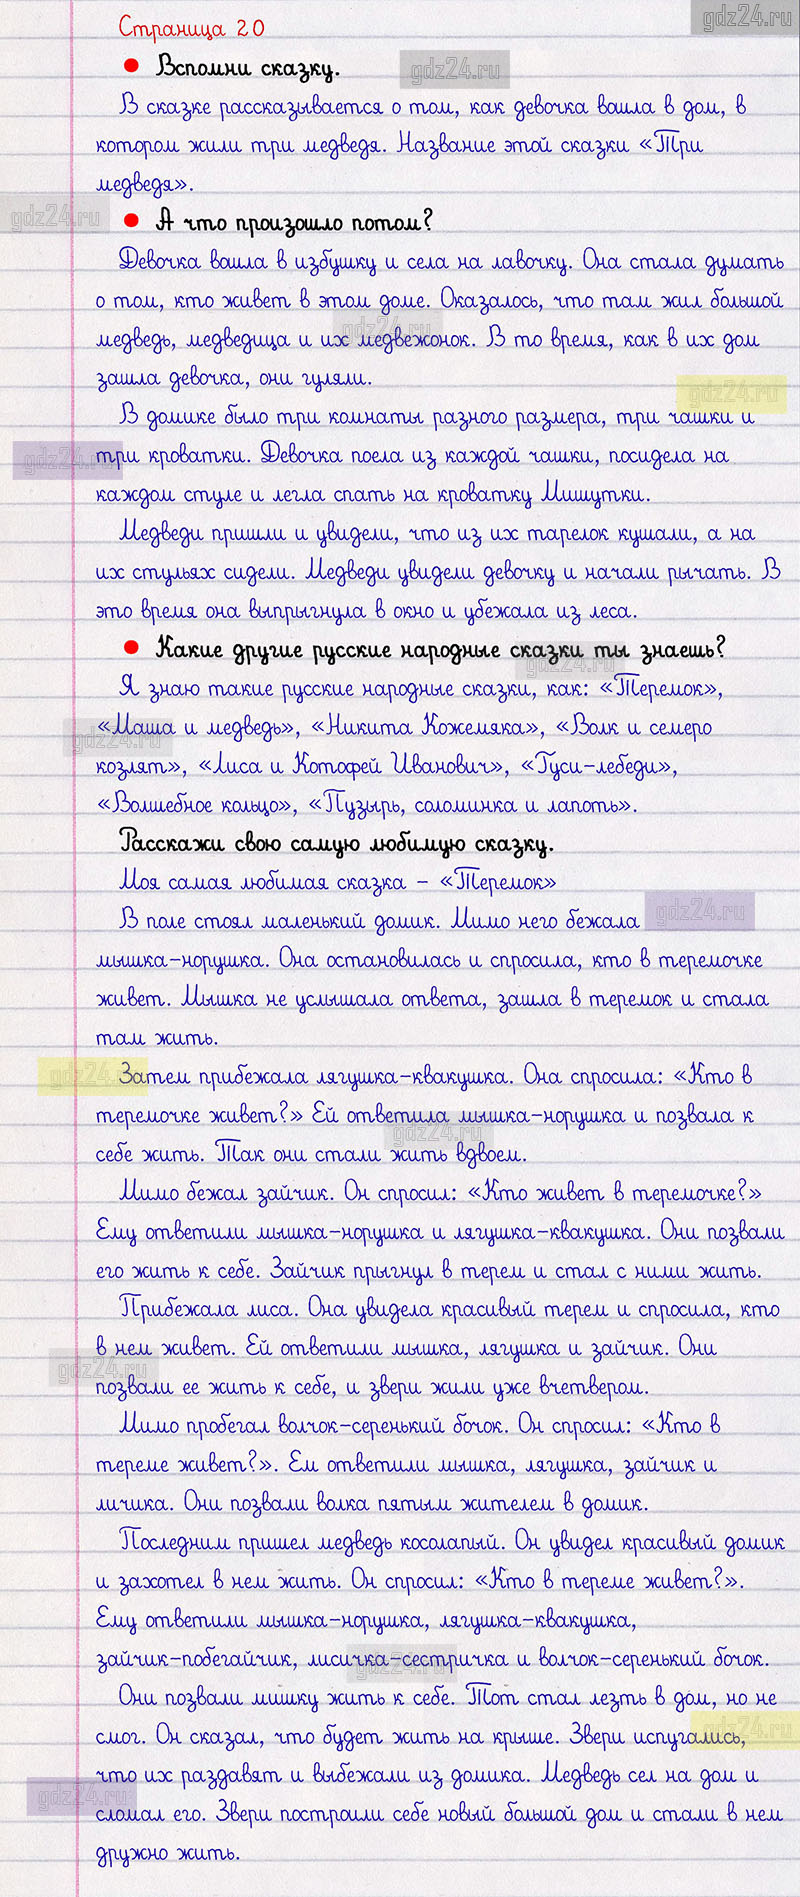 gdz24.ru
Страница 20
Вспомни сказку.
gdz24.ru
В сказке рассказывается о том, как девочка вошла в дом, в
котором жили три медведя. Название этой сказки «Три
медведя».
gdz24.ru
А что произошло потом?
Девочка вошла в избушку и села на лавочку. Она стала думать
о том, кто живет в этом доме. Оказалось, что там жил большой
gdz24.ru
медведь, медведица и их медвежонок. В то время, как в их дом
зашла девочка, они гуляли.
gdz24.ru
В домике было три комнаты разного размера, три чашки и
gdz24.ru
три кроватки. Девочка поела из каждой чашки, посидела на
каждом стуле и легла спать на кроватку Мишутки.
Медведи пришли и увидели, что из их тарелок кушали, а на
их стульях сидели. Медведи увидели девочку и начали рычать. В
это время она выпрыгнула в окно и убежала из леса.
Какие другие русские народные сказки ты знаешь?
gdz24.ru
Я знаю такие русские народные сказки, как: «Теремок»,
«Маша и медведь», «Никита Кожемяка», «Волк и семеро
gdz24.ru
козлят», «Лиса и Котофей Иванович», «Гуси-лебеди»,
«Волшебное кольцо», «Пузырь, соломинка и лапоть».
Расскажи свою самую любимую сказку.
Моя самая любимая сказка – «Теремок»
В поле стоял маленький домик. Мимо него бежала
gdz24.ru
мышка-норушка. Она остановилась и спросила, кто в теремочке
живет. Мышка не услышала ответа, зашла в теремок и стала
там жить.
gdz24.ru
Затем прибежала лягушка-квакушка. Она спросила: «Кто в
теремочке живет?» Ей ответила мышка-норушка и позвала к
gdz24.ru
себе жить. Так они стали жить вдвоем.
Мимо бежал зайчик. Он спросил: «Кто живет в теремочке?»
Ему ответили мышка-норушка и лягушка-квакушка. Они позвали
его жить к себе. Зайчик прыгнул в терем и стал с ними жить.
Прибежала лиса. Она увидела красивый терем и спросила, кто
в нем живет. Ей ответили мышка, лягушка и зайчик. Они
gdz24.ru
позвали ее жить к себе, и звери жили уже вчетвером.
Мимо пробегал волчок-серенький бочок. Он спросил: «Кто в
тереме живет?». Ем ответили мышка, лягушка, зайчик и
личика. Они позвали волка пятым жителем в домик.
Последним пришел медведь косолапый. Он увидел красивый домик
и захотел в нем жить. Он спросил: «Кто в тереме живет?».
Ему ответили мышка-норушка, лягушка-квакушка,
зайчик-побегайчик, лисичка-сестричка и волчок-серенький бочок.
gdz24.ru
Они позвали мишку жить к себе. Тот стал лезть в дом, но не
смог. Он сказал, что будет жить на крыше. Звери испугались,
gdz24.ru
что их раздавят и выбежали из домика. Медведь сел на дом и
gdz24.ru
сломал его. Звери построили себе новый большой дом и стали в нем
дружно жить.